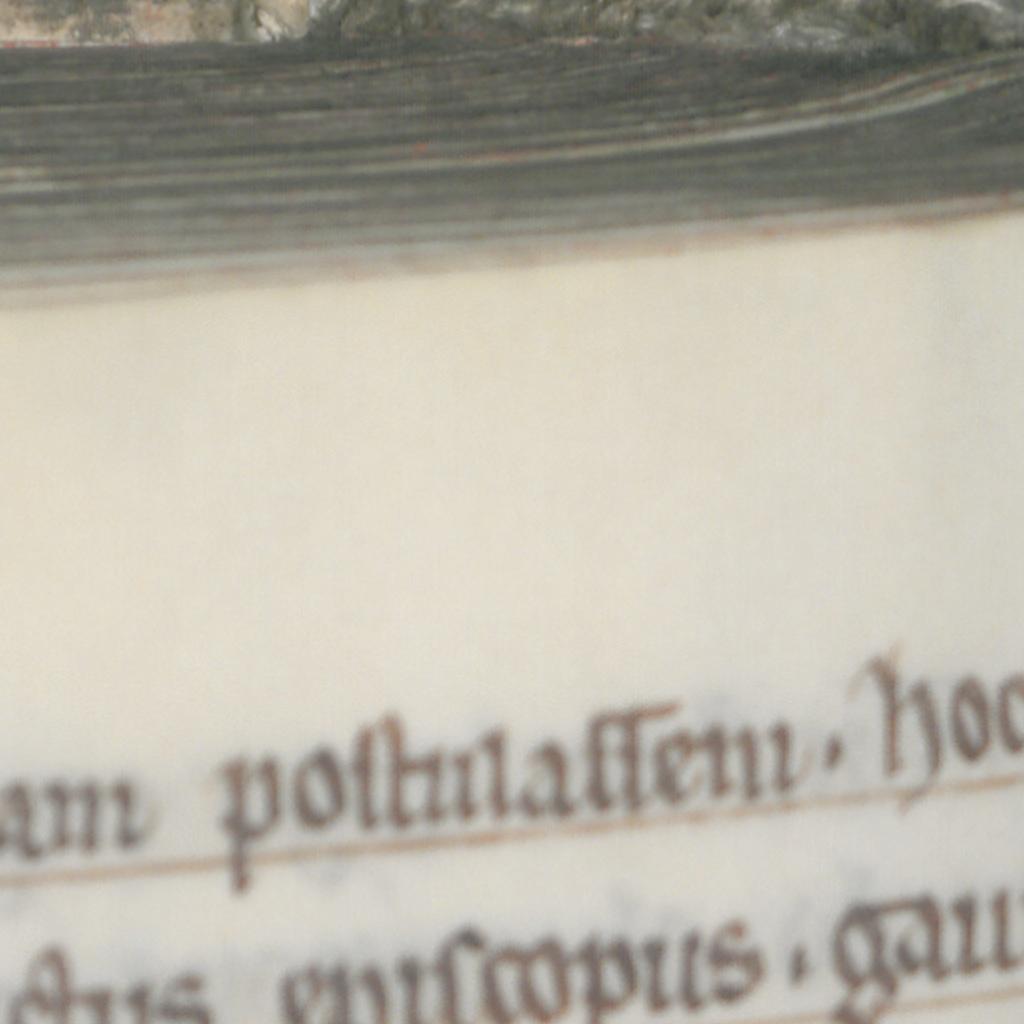 am postulassem. hoc
ctus episcopus. gau